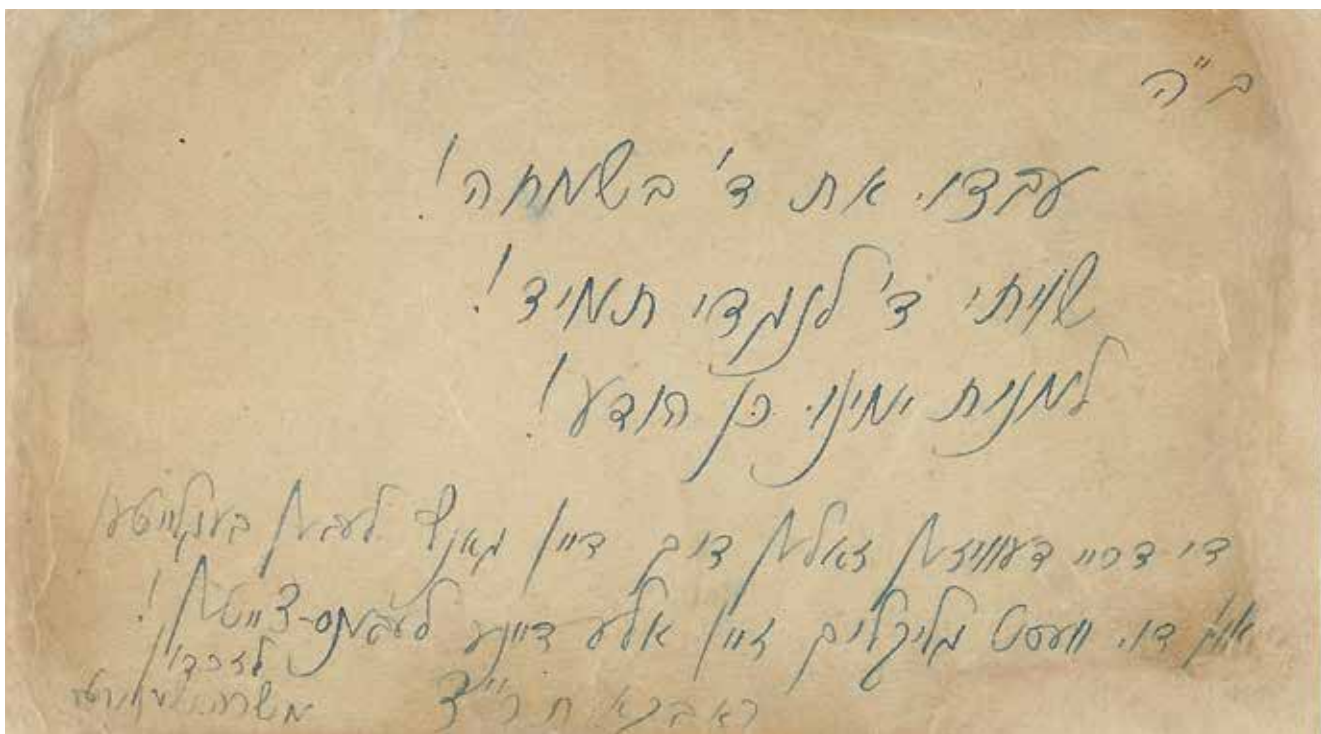 ב"ה
עבדו את ד' בשמחה!
שויתי ד' לנגדי תמיד!
למנות ימינו כן הודע!
די דריי דעוויזען זאלען דיך דיין גאנץ לעבען בעגלייטען
און דו וועסט גליקליך זיין אלע דיינע לעבענס-צייטען!
לזכרון